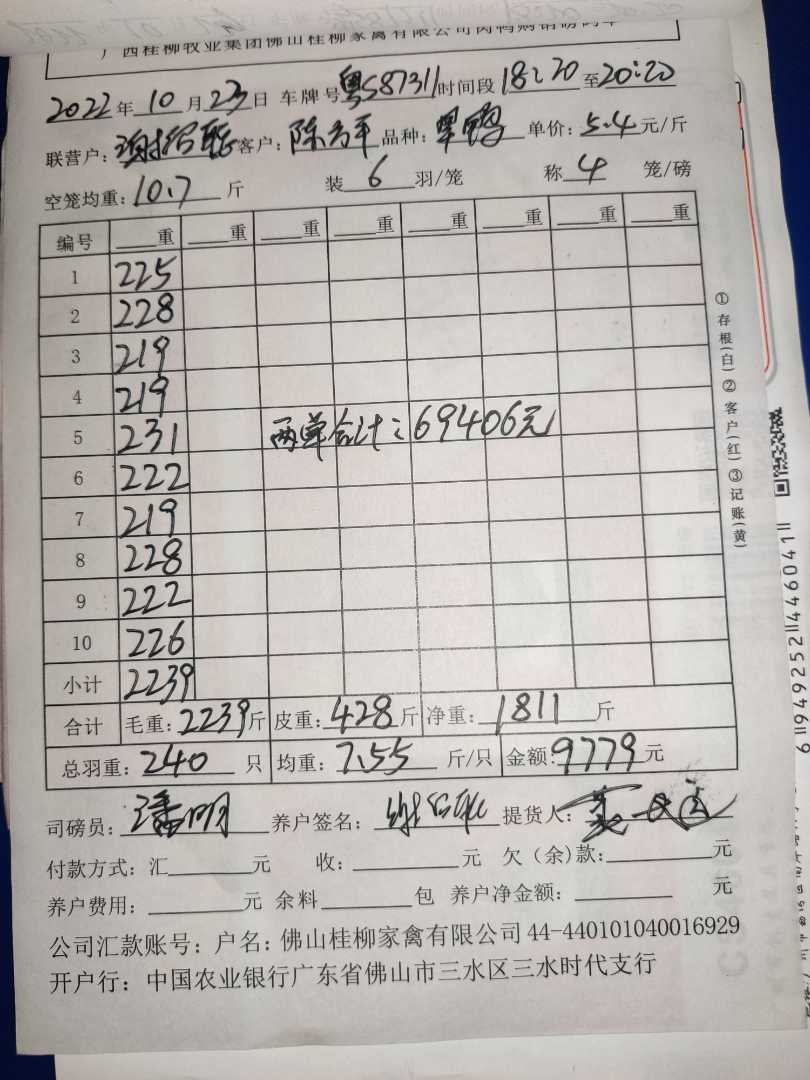 广西桂柳牧业集团佛山桂柳家禽有限公司肉鸭购销磅码单
2022年10月23日 车牌号粤S87311时间段18:20至20:20
联营户：谢绍联 客户：陈方平 品种：单价：5.4元/斤
空笼均重：10.7斤 装6羽/笼 称4笼/磅
编号 重 重 重 重 重 重 重 重
1 225
2 228
3 219
4 219
5 231 两单合计：69406元
6 222
7 219
8 228
9 222
10 226
小计 2239
合计 毛重：2239斤 皮重：428斤 净重：1811斤
总羽重：240只 均重：7.55斤/只 金额：9779元
司磅员：潘明 养户签名：提货人：
付款方式：汇元 收：元 欠（余）款：元
养户费用：元 余料包 养户净金额：元
公司汇款账号：户名：佛山桂柳家禽有限公司 44-440101040016929
开户行：中国农业银行广东省佛山市三水区三水时代支行
①存根(白)②客户(红)③记账(黄)
6949252446041